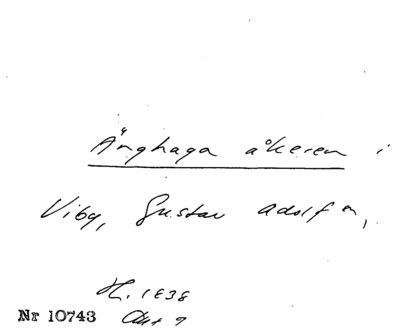 Änghaga åkeren i
Viby, Gustav Adolf sn,
H. 1838
Nr 10743 Akt 9